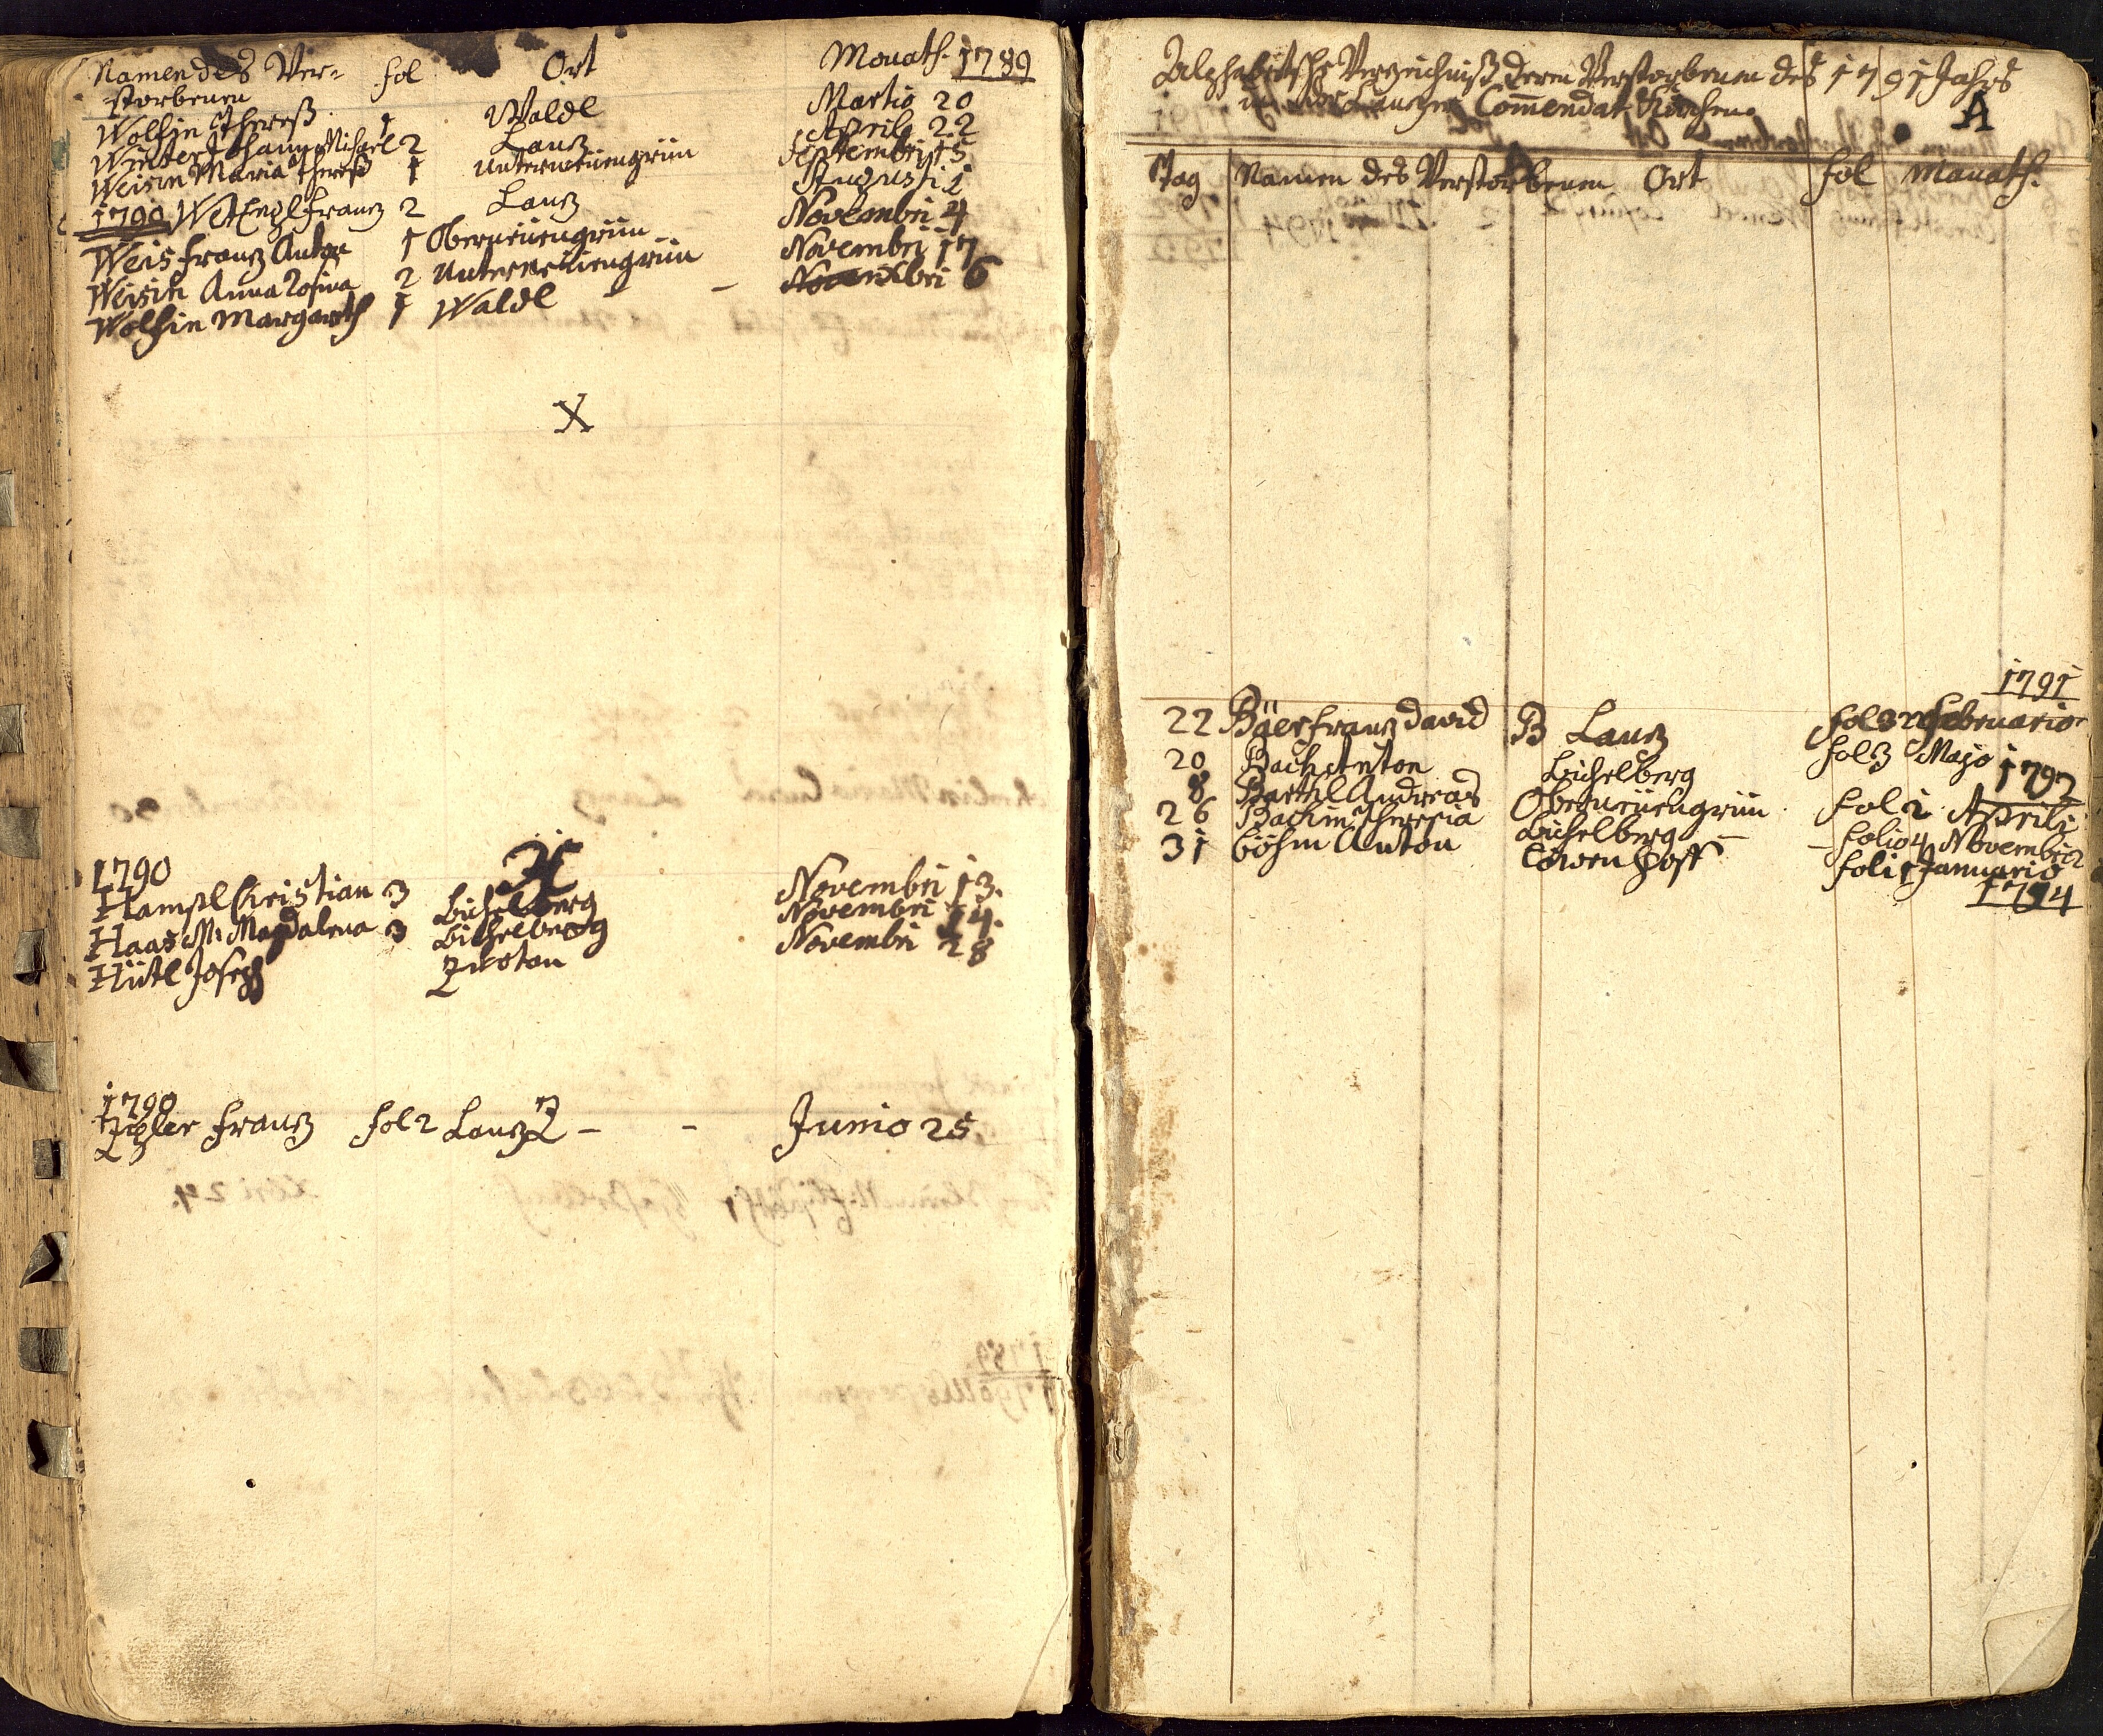 Namen des Ver= fol Ort Monath. 1789
storbenen
Wolfin Theresß 1 Waldl Martio 20
Winter Johann Michael 2 Lanz Aprili 22
Weisin Maria Theresß 1 Unterneüengrün Septembri 15
1790 Franz 2 Lanz Augusti 1
Weis Franz Anton 1 Oberneüengrün Novembri 4
Weisin Anna Rosina 2 Unterneüengrün Novembri 17
Wolfin Margareth 1 Waldl - - 6
X
1790 H
Hampl Christian 3 Lichelberg Novembri 13.
Haas M. Magdalena 3 Lichelberg Novembri 14.
Hütl Joseph Zwotau Novembri 28
1790 Z
Franz fol 2 Lanz - - Junio 25
Alphabetische Verzeichniß deren Verstorbenen des 1791 Jahrs
Lanzer Com̄endat Kirchen. A
Tag Namen des Verstorbenen Ort fol Monath.
1791
22 Bäer Franz David B Lanz fol Februario
20 Bach Anton Lichelberg fol 3 Majo
1792
8 Barthl Andreas Oberneüengrün fol 1 Aprili
26 Bachin Theresia Lichelberg - folio 4 Novembri
31 Böhm Anton Löwenhoff fol 1 Januario
1794